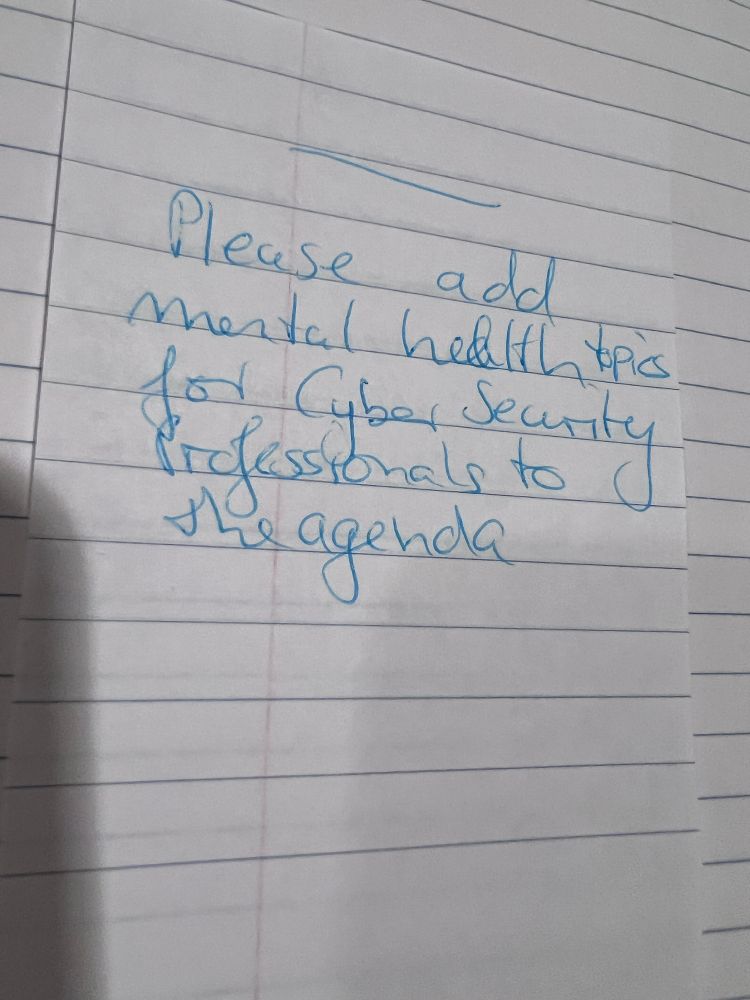 Please add
mental health topics
for Cyber Security
Professionals to
the agenda